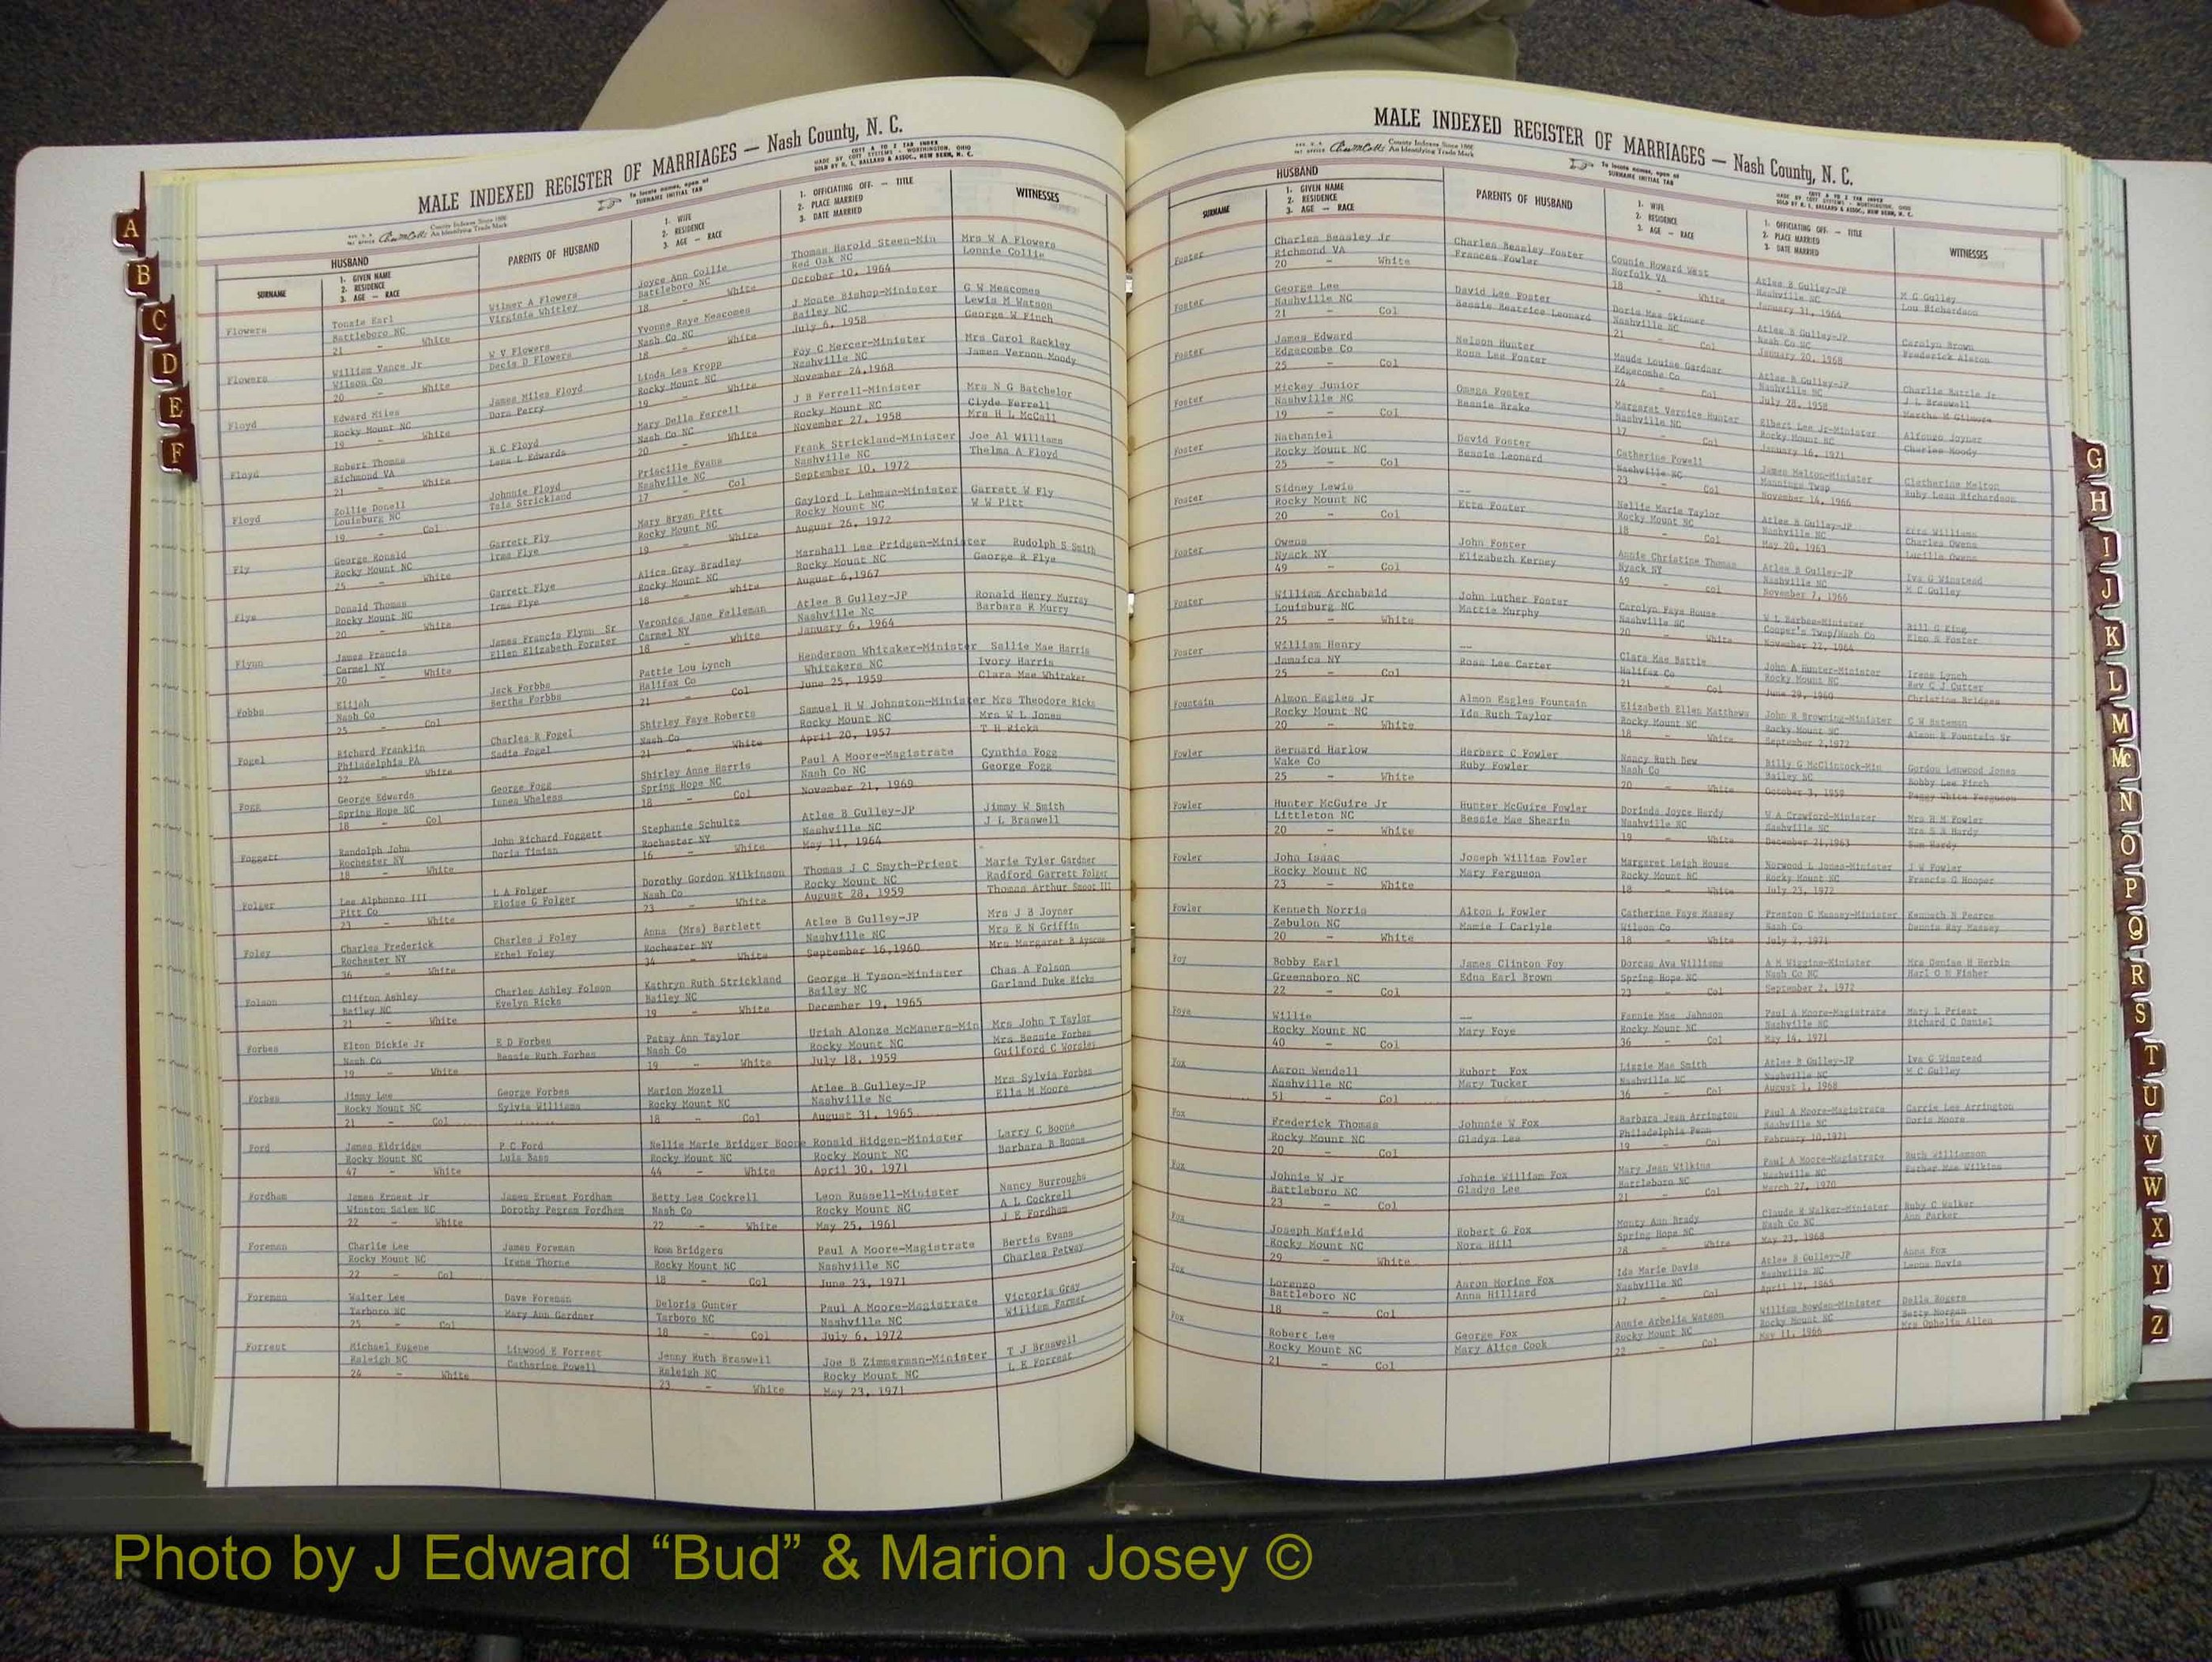 MALE INDEXED REGISTER OF MARRIAGES — Nash County, N. C.
County Indexes Since 1888
An Identifying Trade Mark
To locate names, open at
SURNAME INITIAL TAB
COTT A TO Z TAB INDEX
MADE BY COTT SYSTEMS - WORTHINGTON, OHIO
SOLD BY R. L. BALLARD & ASSOC., NEW BERN, N. C.
HUSBAND
SURNAME
1. GIVEN NAME
2. RESIDENCE
3. AGE — RACE
PARENTS OF HUSBAND
1. WIFE
2. RESIDENCE
3. AGE — RACE
1. OFFICIATING OFF. — TITLE
2. PLACE MARRIED
3. DATE MARRIED
WITNESSES
Flowers Battleboro NC Virginia Whitley Battleboro NC Red Oak NC Lonnie Collie
21 - White 18 - White October 10, 1964
Flowers William Vance Jr W V Flowers J Monte Bishop-Minister
Wilson Co Decie D Flowers Nash Co NC Bailey NC Lewis M Watson
20 - White 18 - White July 6, 1958 George W Finch
Floyd Edward Miles James Miles Floyd Linda Lea Kropp Foy C Mercer-Minister Mrs Carol Rackley
Rocky Mount NC Dora Perry Rocky Mount NC Nashville NC James Vernon Moody
19 - White 19 - White November 24,1968
Floyd Robert Thomas R C Floyd Mary Della Ferrell J B Ferrell-Minister Mrs N G Batchelor
Richmond VA Lena L Edwards Nash Co NC Rocky Mount NC Clyde Ferrell
21 - White 20 - White November 27, 1958 Mrs H L McCall
Floyd Zollie Donell Johnnie Floyd Priscille Evans Frank Strickland-Minister Joe Al Williams
Louisburg NC Tula Strickland Nashville NC Nashville NC Thelma A Floyd
19 - Col 17 - Col September 10, 1972
Fly George Ronald Garrett Fly Mary Bryan Pitt Gaylord L Lehman-Minister Garrett W Fly
Rocky Mount NC Irma Flye Rocky Mount NC Rocky Mount NC W W Pitt
25 - White 19 - White August 26, 1972
Flye Donald Thomas Garrett Flye Alice Gray Bradley Marshall Lee Pridgen-Minister Rudolph S Smith
Rocky Mount NC Irma Flye Rocky Mount NC Rocky Mount NC George R Flye
20 - White 18 - white August 6,1967
Flynn James Francis James Francis Flynn Sr Veronica Jane Felleman Atlee B Gulley-JP Ronald Henry Murray
Carmel NY Ellen Elizabeth Forster Carmel NY Nashville Nc Barbara R Murry
20 - White 18 - white January 6, 1964
Fobbs Elijah Jack Forbbs Pattie Lou Lynch Henderson Whitaker-Minister Sallie Mae Harris
Nash Co Bertha Forbbs Halifax Co Whitakers NC Ivory Harris
25 - Col 21 - Col June 25, 1959 Clara Mae Whitaker
Fogel Richard Franklin Charles R Fogel Shirley Faye Roberts Samuel H W Johnston-Minister Mrs Theodore Ricks
Philadelphia PA Sadie Fogel Nash Co Rocky Mount NC Mrs W L Jones
22 - White 21 - White April 20, 1957 T H Ricks
Fogg George Edwards George Fogg Shirley Anne Harris Paul A Moore-Magistrate Cynthia Fogg
Spring Hope NC Spring Hope NC Nash Co NC George Fogg
18 - Col 18 - Col November 21, 1969
Foggett Randolph John John Richard Foggett Stephanie Schultz Atlee B Gulley-JP Jimmy W Smith
Rochester NY Rochester NY Nashville NC J L Braswell
18 - White 16 - White May 11, 1964
Folger Lee Alphonzo III L A Folger Dorothy Gordon Wilkinson Thomas J C Smyth-Priest Marie Tyler Gardner
Pitt Co Eloise G Folger Nash Co Rocky Mount NC Radford Garrett Folger
23 - White 23 - White August 28, 1959 Thomas Arthur Smoot III
Foley Charles Frederick Charles J Foley Anna (Mrs) Bartlett Atlee B Gulley-JP Mrs J B Joyner
Rochester NY Ethel Foley Rochester NY Nashville NC Mrs E N Griffin
36 - White 34 - White September 16,1960 Mrs Margaret B Ayscue
Folson Clifton Ashley Charles Ashley Folson Kathryn Ruth Strickland George H Tyson-Minister Chas A Folson
Bailey NC Evelyn Ricks Bailey NC Bailey NC Garland Duke Ricks
21 - White 19 - White December 19, 1965
Forbes Elton Dickie Jr E D Forbes Patsy Ann Taylor Uriah Alonza McManers-Min Mrs John T Taylor
Nash Co Bessie Ruth Forbes Nash Co Rocky Mount NC Mrs Bessie Forbes
19 - White 19 - White July 18, 1959 Guilford C Worsley
Forbes Jimmy Lee George Forbes Marion Mozell Atlee B Gulley-JP Mrs Sylvia Forbes
Rocky Mount NC Sylvia Williams Rocky Mount NC Nashville Nc Ella M Moore
21 - Col 18 - Col August 31, 1965
Ford James Eldridge P C Ford Nellie Marie Bridger Boone Ronald Hidgen-Minister Larry C Boone
Rocky Mount NC Lula Bass Rocky Mount NC Rocky Mount NC Barbara B Boone
47 - White 44 - White April 30, 1971
Fordham James Ernest Jr James Ernest Fordham Betty Lee Cockrell Leon Russell-Minister Nancy Burroughs
Winston Salem NC Dorothy Pegram Fordham Nash Co Rocky Mount NC A L Cockrell
22 - White 22 - White May 25, 1961 J E Fordham
Foreman Charlie Lee James Foreman Rosa Bridgers Paul A Moore-Magistrate Bertis Evans
Rocky Mount NC Irene Thorne Rocky Mount NC Nashville NC Charles Petway
22 - Col 18 - Col June 23, 1971
Foreman Walter Lee Dave Foreman Deloris Gunter Paul A Moore-Magistrate Victoria Gray
Tarboro NC Mary Ann Gardner Tarboro NC Nashville NC William Farmer
25 - Col 18 - Col July 6, 1972
Forrest Michael Eugene Linwood E Forrest Jenny Ruth Braswell Joe B Zimmerman-Minister T J Braswell
Raleigh NC Catharine Powell Raleigh NC Rocky Mount NC L E Forrest
24 - White 23 - White May 23, 1971
MALE INDEXED REGISTER OF MARRIAGES — Nash County, N. C.
County Indexes Since 1888
An Identifying Trade Mark
To locate names, open at
SURNAME INITIAL TAB
HUSBAND
SURNAME
1. GIVEN NAME
2. RESIDENCE
3. AGE — RACE
PARENTS OF HUSBAND
1. WIFE
2. RESIDENCE
3. AGE — RACE
1. OFFICIATING OFF. — TITLE
2. PLACE MARRIED
3. DATE MARRIED
WITNESSES
Foster Charles Beasley Jr Charles Beasley Foster Connie Howard West Atlee B Gulley-JP M C Gulley
Richmond VA Frances Fowler Norfolk VA Nashville NC Lou Richardson
20 - White 18 - White January 31, 1964
Foster George Lee David Lee Foster Doris Mae Skinner Atlee B Gulley-JP Carolyn Brown
Nashville NC Bessie Beatrice Leonard Nashville NC Nash Co NC Frederick Alston
21 - Col 21 - Col January 20, 1968
Foster James Edward Nelson Hunter Maude Louise Gardner Atlee B Gulley-JP Charlie Battle Jr
Edgecombe Co Rosa Lee Foster Edgecombe Co Nashville NC J L Braswell
25 - Col 24 - Col July 28, 1958 Martha M Gilmore
Foster Mickey Junior Omega Foster Margaret Vernice Hunter Elbert Lee Jr-Minister Alfonzo Joyner
Nashville NC Bessie Brake Nashville NC Rocky Mount NC Charles Moody
19 - Col 17 - Col January 16, 1971
Foster Nathaniel David Foster Catherine Powell James Melton-Minister Clatherine Melton
Rocky Mount NC Bessie Leonard Nashville NC Mannings Twsp Ruby Lean Richardson
25 - Col 23 - Col November 14, 1966
Foster Sidney Lewis -- Nellie Marie Taylor Atlee B Gulley-JP Etta Williams
Rocky Mount NC Etta Foster Rocky Mount NC Nashville NC Charles Owens
20 - Col 18 - Col May 20, 1963 Lucille Owens
Foster Owens John Foster Annie Christine Thomas Atlee B Gulley-JP Iva G Winstead
Nyack NY Elizabeth Kerney Nyack NY Nashville NC M C Gulley
49 - Col 49 - col November 7, 1966
Foster William Archabald John Luther Foster Carolyn Faye House W L Barbee-Minister Bill G King
Louisburg NC Mattie Murphy Nashville NC Cooper's Twsp/Nash Co
25 - White 20 - White November 22, 1964
Foster William Henry -- Clara Mae Battle John A Hunter-Minister Irene Lynch
Jamaica NY Rosa Lee Carter Halifax Co Rocky Mount NC Rev C J Cutter
25 - Col 21 - Col June 29, 1960 Christine Bridges
Fountain Almon Eagles Jr Almon Eagles Fountain Elizabeth Ellen Matthews John R Browning-Minister C W Bateman
Rocky Mount NC Ida Ruth Taylor Rocky Mount NC Rocky Mount NC Almon E Fountain Sr
20 - White 18 - White September 2,1972
Fowler Bernard Harlow Herbert C Fowler Nancy Ruth Dew Billy G McClintock-Min Gordon Lenwood Jones
Wake Co Ruby Fowler Nash Co Bailey NC Bobby Lee Finch
25 - White 20 - White October 3, 1959 Peggy White Ferguson
Fowler Hunter McGuire Jr Hunter McGuire Fowler Dorinda Joyce Hardy W A Crawford-Minister Mrs H M Fowler
Littleton NC Bessie Mae Shearin Nashville NC Nashville NC Mrs S A Hardy
20 - White 19 - White December 21,1963 Sam Hardy
Fowler John Isaac Joseph William Fowler Margaret Leigh House Norwood L Jones-Minister J W Fowler
Rocky Mount NC Mary Ferguson Rocky Mount NC Rocky Mount NC Francis G Hooper
23 - White 18 - White July 23, 1972
Fowler Kenneth Norris Alton L Fowler Catherine Faye Massey Preston C Massey-Minister Kenneth N Pearce
Zebulon NC Mamie I Carlyle Wilson Co Nash Co Dennis Ray Massey
20 - White 18 - White July 2, 1971
Foy Bobby Earl James Clinton Foy Dorcas Ava Williams A M Wiggins-Minister Mrs Denise H Herbin
Greensboro NC Edna Earl Brown Spring Hope NC Nash Co NC Harl O N Fisher
22 - Col 23 - Col September 2, 1972
Foye Willie -- Fannie Mae Johnson Paul A Moore-Magistrate Mary L Priest
Rocky Mount NC Mary Foye Rocky Mount NC Nashville NC Richard C Daniel
40 - Col 36 - Col May 14, 1971
Fox Aaron Wendell Hubort Fox Lizzie Mae Smith Atlee B Gulley-JP Iva G Winstead
Nashville NC Mary Tucker Nashville NC Nashville NC M C Gulley
51 - Col 36 - Col August 1, 1968
Fox Frederick Thomas Johnnie W Fox Barbara Jean Arrington Paul A Moore-Magistrate Carrie Lee Arrington
Rocky Mount NC Gladys Lee Philadelphia Penn Nashville NC Doris Moore
20 - Col 19 - Col February 10,1971
Fox Johnie W Jr Johnie William Fox Mary Jean Wilkins Paul A Moore-Magistrate Ruth Williamson
Battleboro NC Gladys Lee Battleboro NC Nashville NC Esther Mae Wilkins
23 - Col 21 - Col March 27, 1970
Fox Joseph Mafield Robert G Fox Monty Ann Brady Claude R Walker-Minister Ruby G Walker
Rocky Mount NC Nora Hill Spring Hope NC Nash Co NC Ann Parker
29 - White 28 - White May 23, 1968
Fox Lorenzo Aaron Horine Fox Ida Marie Davis Atlee B Gulley-JP Anna Fox
Battleboro NC Anna Hilliard Nashville NC Nashville NC Leona Davis
18 - Col 17 - Col April 17, 1965
Fox Robert Lee George Fox Annie Arbelia Watson William Bowden-Minister Della Rogers
Rocky Mount NC Mary Alice Cook Rocky Mount NC Rocky Mount NC Betty Morgan
21 - Col 22 - Col May 11, 1966 Mrs Ophelia Allen
A
B
C
D
E
F
G
H
I
J
K
L
M
Mc
N
O
P
Q
R
S
T
U
V
W
X
Y
Z
Photo by J Edward “Bud” & Marion Josey ©